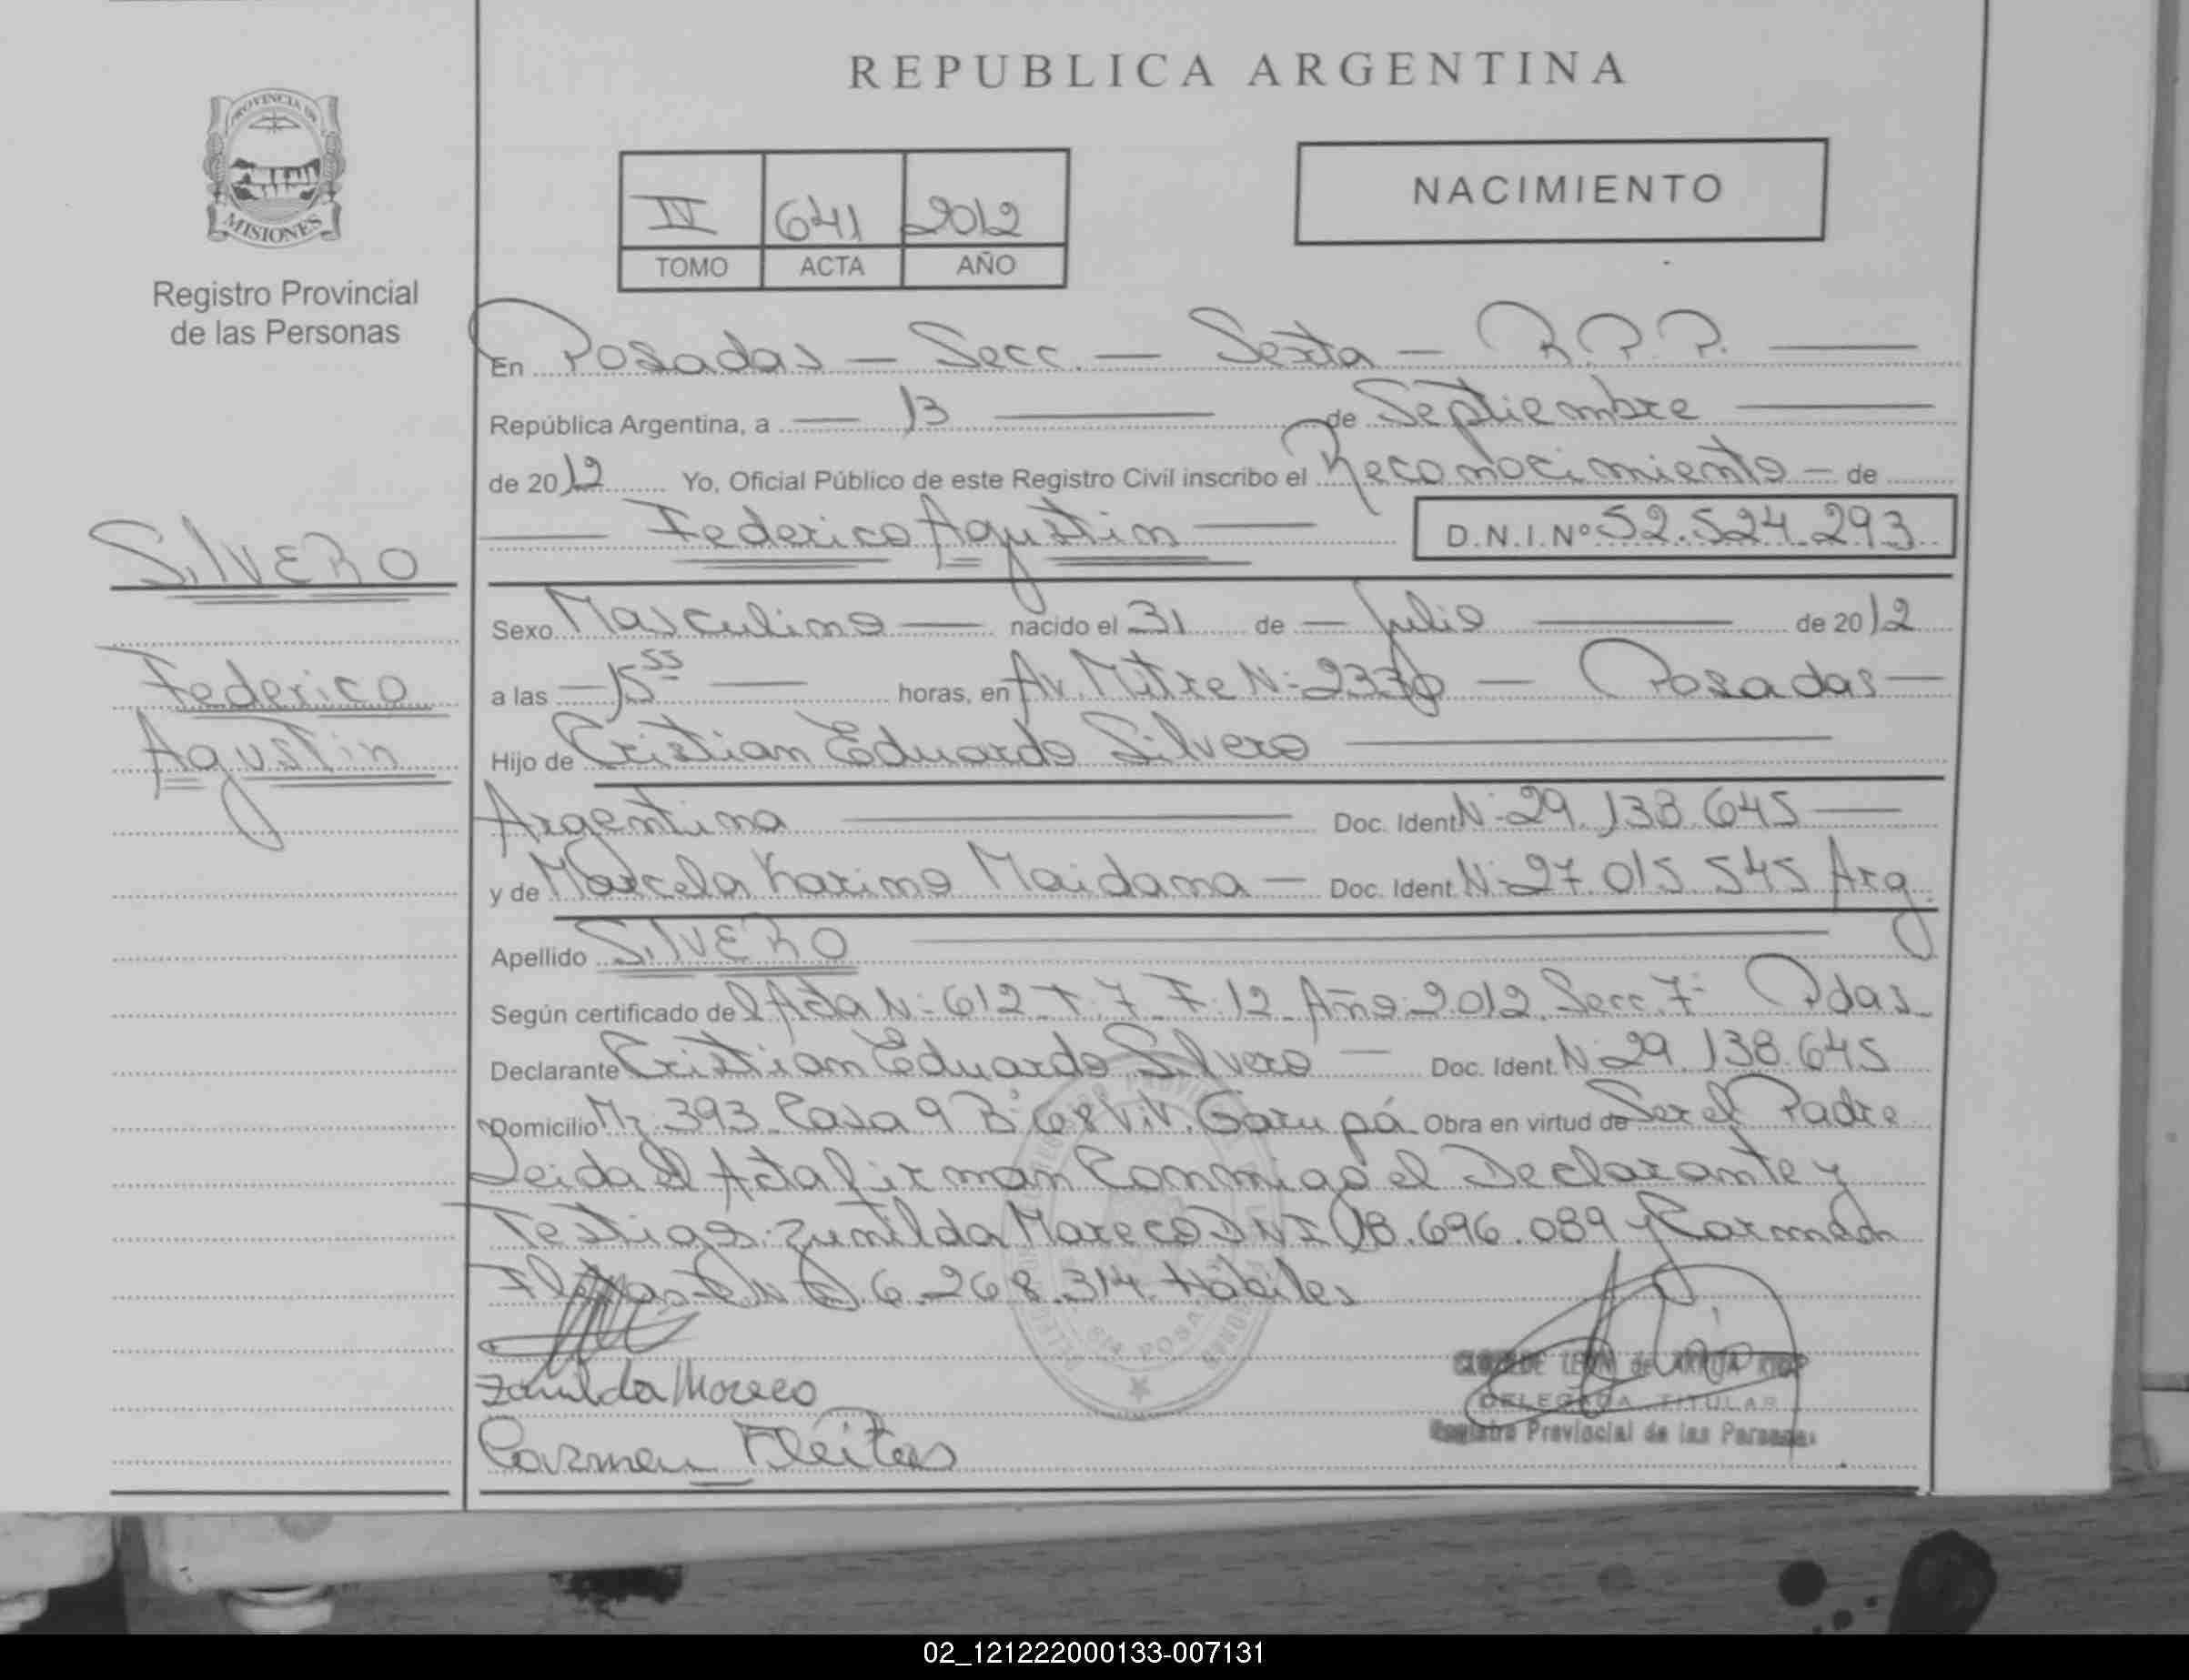 REPUBLICA ARGENTINA
PROVINCIA DE
MISIONES
Registro Provincial
de las Personas
IV 641 2012
TOMO ACTA AÑO
NACIMIENTO
En Posadas — Secc. — Sexta — R.P.P. —
República Argentina, a — 13 — de Septiembre —
de 2012 Yo, Oficial Público de este Registro Civil inscribo el Reconocimiento — de
— Federico Agustin — D.N.I. Nº 52.524.293
SILVERO
Federico
Agustin
Sexo Masculino — nacido el 31 de — Julio — de 2012
a las — 15 55 — horas, en Av. Mitre N: 2330 — Posadas —
Hijo de Cristian Eduardo Silvero —
Argentina — Doc. Ident N: 29.138.645 —
y de Marcela Karina Maidana — Doc. Ident. N: 27.015.545 Arg.
Apellido SILVERO —
Según certificado del Acta N: 612 T. 7 F. 12 Año 2012 Secc. 7: Pdas
Declarante Cristian Eduardo Silvero — Doc. Ident. N: 29.138.645
Domicilio Mz 393 Casa 9 B: 68 Viv. Garupá Obra en virtud de Ser el Padre
Leida el Acta firman Conmigo el Declarante y
Testigos: Zunilda Mareco DNI 18.696.089 y Carmen
6.268.314 Hábiles
Zunilda Mareco
Carmen Fleitas
DELEGADA TITULAR
Registro Provincial de las Personas
02_121222000133-007131